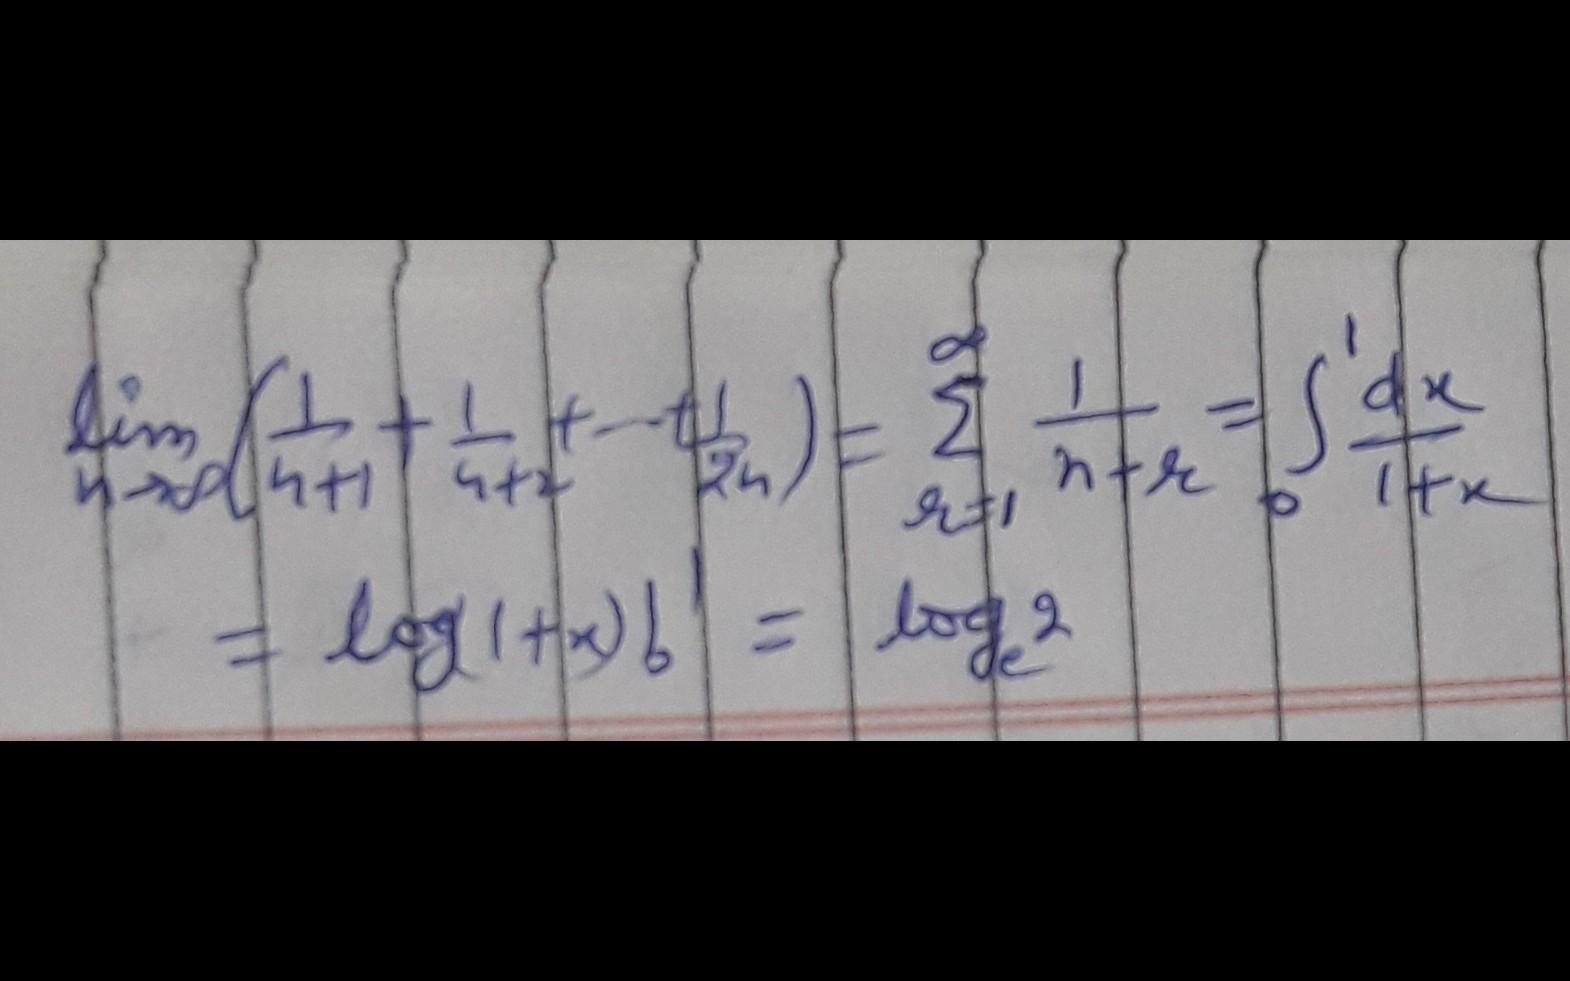 lim n→∞ (1/(n+1) + 1/(n+2) + --- + 1/2n) = ∑_{r=1}^{∞} 1/(n+r) = ∫₀¹ dx/(1+x)
= log(1+x)]₀¹ = logₑ2